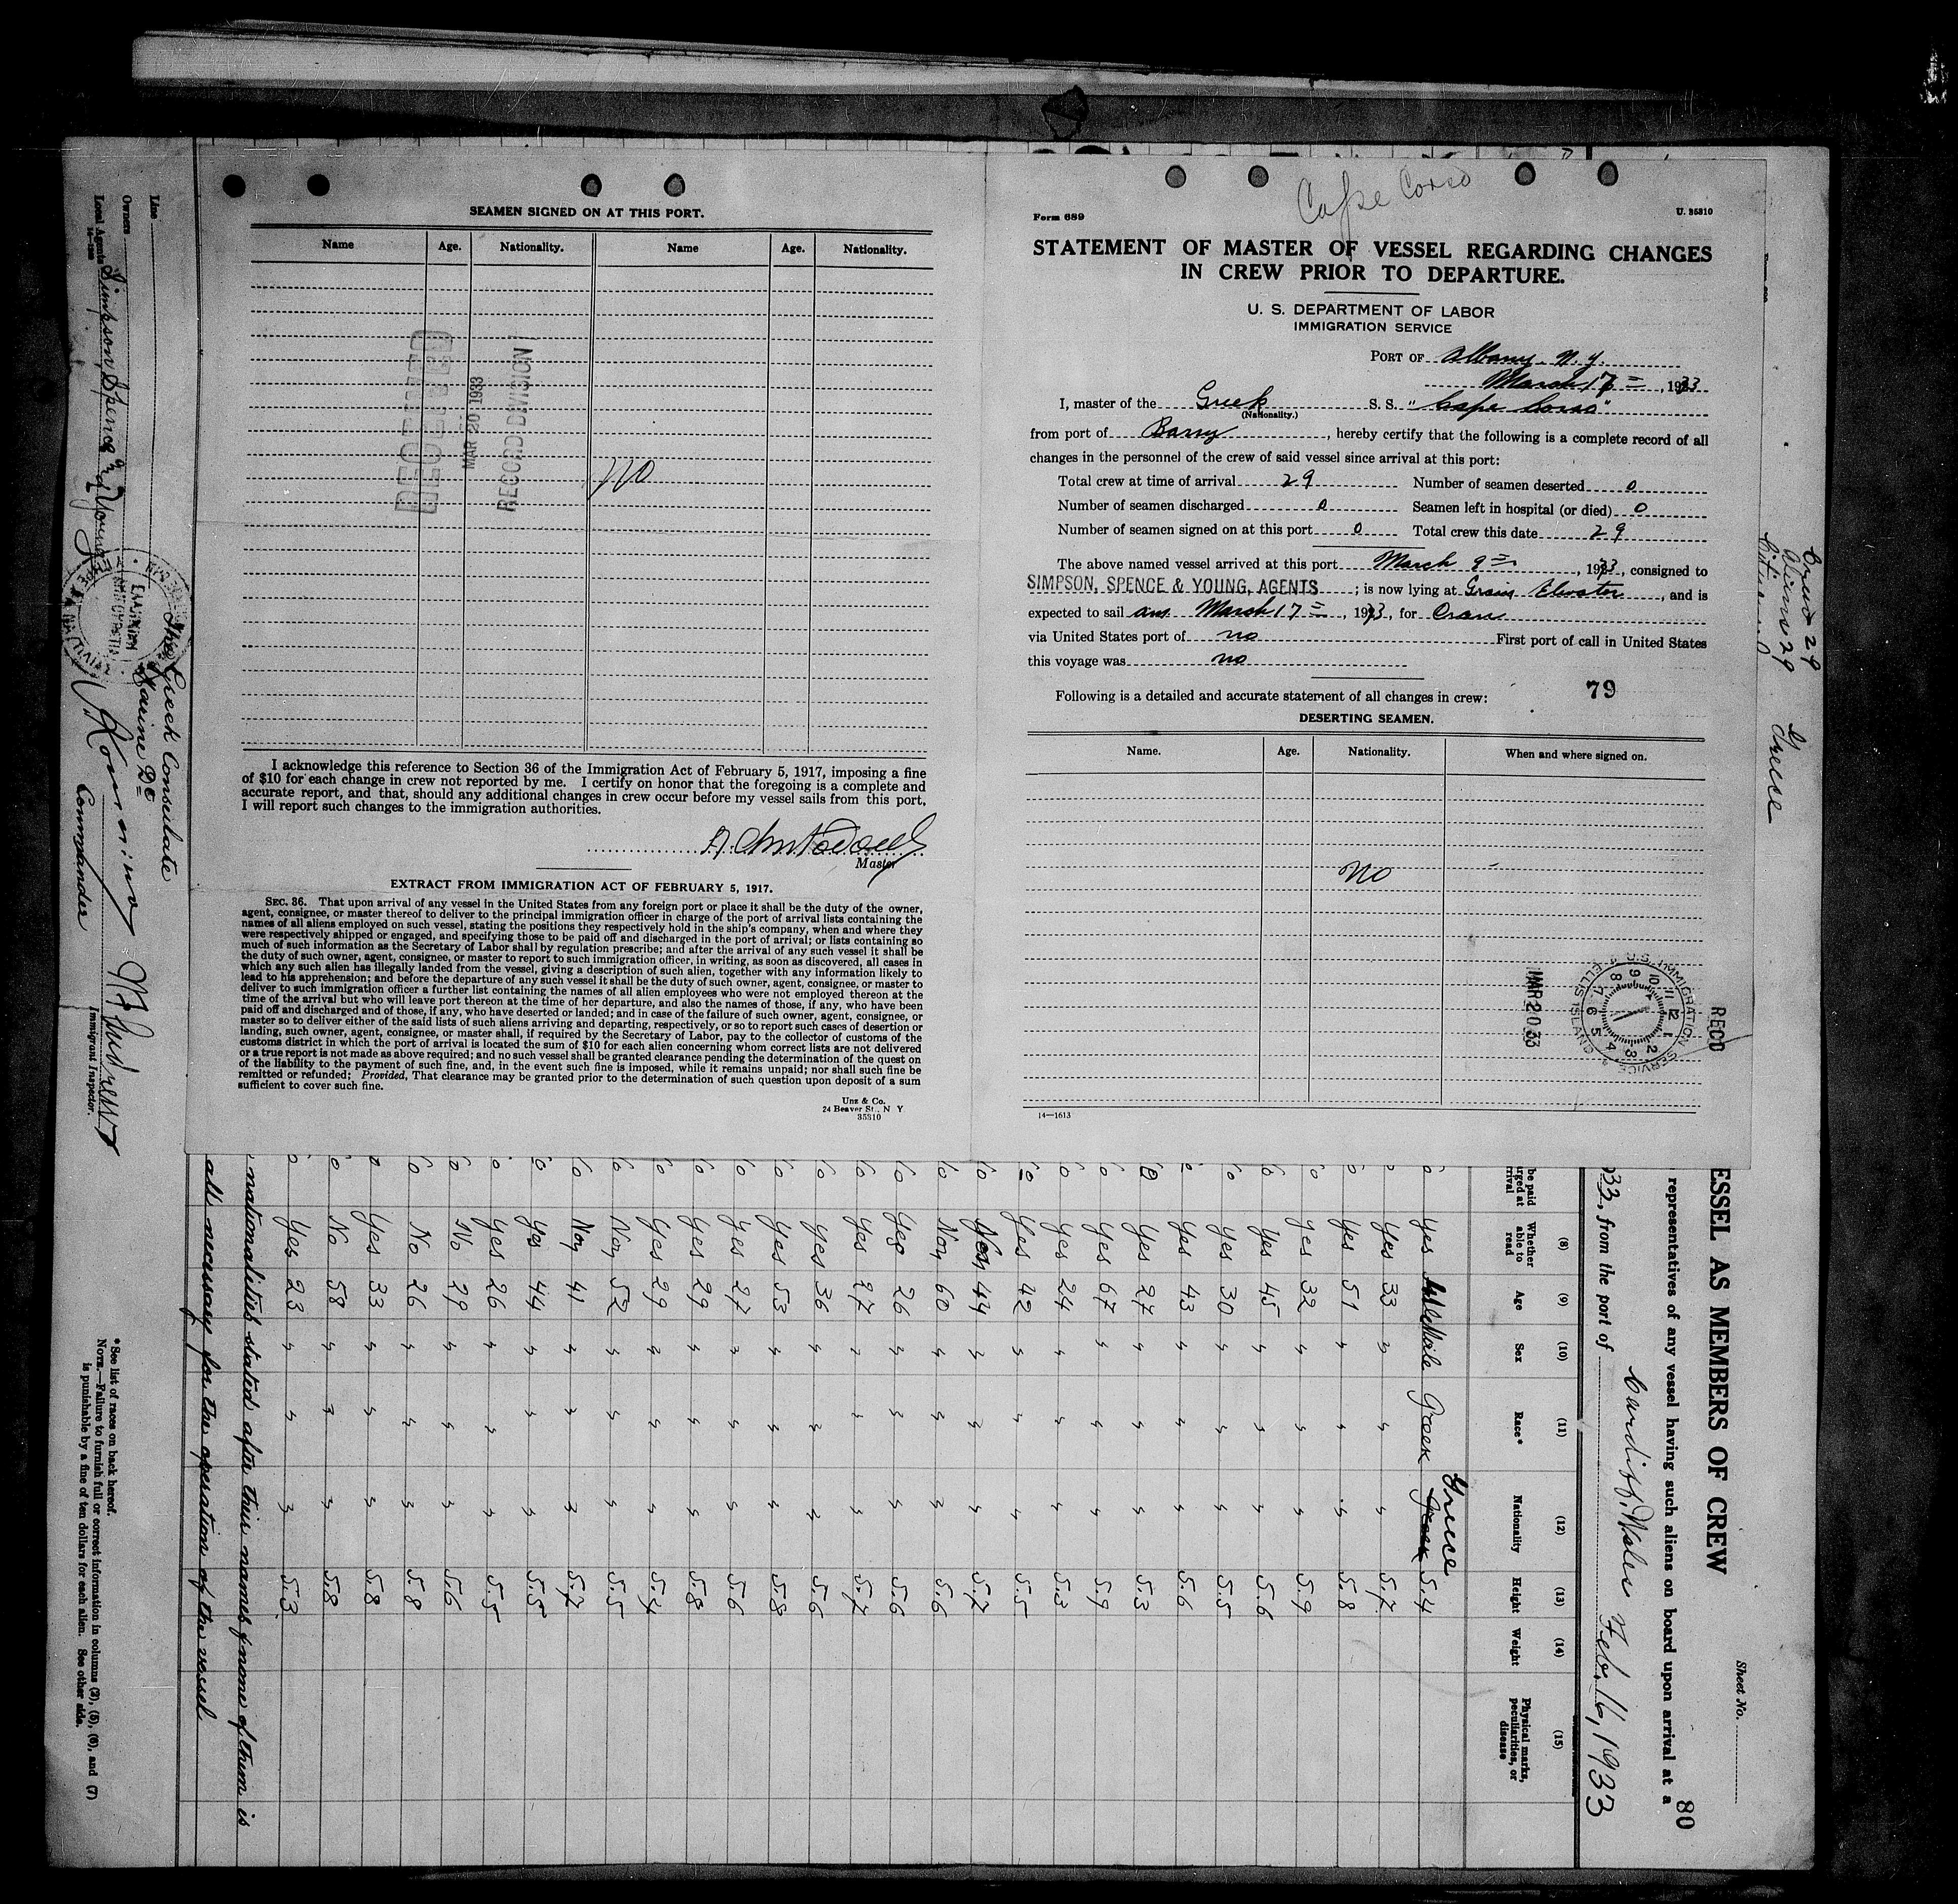 Cape Corso
Form 689
U. 35310
STATEMENT OF MASTER OF VESSEL REGARDING CHANGES
IN CREW PRIOR TO DEPARTURE.
U. S. DEPARTMENT OF LABOR
IMMIGRATION SERVICE
PORT OF Albany N. Y.
March 17 = , 1933
I, master of the Greek S. S. "Cape Corso"
(Nationality.)
from port of Barry , hereby certify that the following is a complete record of all
changes in the personnel of the crew of said vessel since arrival at this port:
Total crew at time of arrival 29 Number of seamen deserted 0
Number of seamen discharged 0 Seamen left in hospital (or died) 0
Number of seamen signed on at this port 0 Total crew this date 29
The above named vessel arrived at this port March 9 = , 1933, consigned to
SIMPSON, SPENCE & YOUNG, AGENTS ; is now lying at Grain Elevator , and is
expected to sail March 17 = , 1933, for
via United States port of no First port of call in United States
this voyage was no
Following is a detailed and accurate statement of all changes in crew: 79
DESERTING SEAMEN.
Name. Age. Nationality. When and where signed on.
No
REC'D
U.S. IMMIGRATION SERVICE
ELLIS ISLAND
MAR 20 33
14—1613
SEAMEN SIGNED ON AT THIS PORT.
Name Age. Nationality. Name Age. Nationality.
MAR 20 1933
RECORD DIVISION
no
I acknowledge this reference to Section 36 of the Immigration Act of February 5, 1917, imposing a fine
of $10 for each change in crew not reported by me. I certify on honor that the foregoing is a complete and
accurate report, and that, should any additional changes in crew occur before my vessel sails from this port,
I will report such changes to the immigration authorities.
Master
EXTRACT FROM IMMIGRATION ACT OF FEBRUARY 5, 1917.
SEC. 36. That upon arrival of any vessel in the United States from any foreign port or place it shall be the duty of the owner,
agent, consignee, or master thereof to deliver to the principal immigration officer in charge of the port of arrival lists containing the
names of all aliens employed on such vessel, stating the positions they respectively hold in the ship's company, when and where they
were respectively shipped or engaged, and specifying those to be paid off and discharged in the port of arrival; or lists containing so
much of such information as the Secretary of Labor shall by regulation prescribe; and after the arrival of any such vessel it shall be
the duty of such owner, agent, consignee, or master to report to such immigration officer, in writing, as soon as discovered, all cases in
which any such alien has illegally landed from the vessel, giving a description of such alien, together with any information likely to
lead to his apprehension; and before the departure of any such vessel it shall be the duty of such owner, agent, consignee, or master to
deliver to such immigration officer a further list containing the names of all alien employees who were not employed thereon at the
time of the arrival but who will leave port thereon at the time of her departure, and also the names of those, if any, who have been
paid off and discharged and of those, if any, who have deserted or landed; and in case of the failure of such owner, agent, consignee, or
master so to deliver either of the said lists of such aliens arriving and departing, respectively, or so to report such cases of desertion or
landing, such owner, agent, consignee, or master shall, if required by the Secretary of Labor, pay to the collector of customs of the
customs district in which the port of arrival is located the sum of $10 for each alien concerning whom correct lists are not delivered
or a true report is not made as above required; and no such vessel shall be granted clearance pending the determination of the quest on
of the liability to the payment of such fine, and, in the event such fine is imposed, while it remains unpaid; nor shall such fine be
remitted or refunded; Provided, That clearance may be granted prior to the determination of such question upon deposit of a sum
sufficient to cover such fine.
Unz & Co.
24 Beaver St., N Y
35310
Crew 29
Aliens 29 Greece
Sheet No.
80
ESSEL AS MEMBERS OF CREW
representatives of any vessel having such aliens on board upon arrival at a
33, from the port of Cardiff, Wales Feb. 16, 1933
be paid
Whether able to read
Age
Sex
Race*
Nationality
Height
Weight
Physical marks, peculiarities, or disease
(8) (9) (10) (11) (12) (13) (14) (15)
Greece
Yes Male Greek Greek 5.4
Yes 33 " " " 5.7
Yes 51 " " " 5.8
Yes 32 " " " 5.9
Yes 45 " " " 5.6
Yes 30 " " " 5.5
Yes 43 " " " 5.6
Yes 27 " " " 5.3
Yes 67 " " " 5.9
Yes 24 " " " 5.3
Yes 42 " " " 5.5
44 " " " 5.7
No 60 " " " 5.6
Yes 26 " " " 5.6
Yes 27 " " " 5.7
Yes 36 " " " 5.6
Yes 53 " " " 5.8
Yes 27 " " " 5.6
Yes 29 " " " 5.8
Yes 29 " " " 5.4
No 52 " " " 5.5
No 41 " " " 5.7
Yes 44 " " " 5.5
Yes 26 " " " 5.5
No 29 " " " 5.6
No 26 " " " 5.8
Yes 33 " " " 5.8
No 58 " " " 5.8
Yes 23 " " " 5.3
nationalities stated after their names & none of them is
all necessary for the operation of the vessel
Line
Owners
Local Agents Simpson, Spence & Young
The Greek Consulate
Marine Dt
Commander
Immigrant Inspector.
* See list of races on back hereof.
NOTE.—Failure to furnish full or correct information in columns (3), (5), (6), and (7)
is punishable by a fine of ten dollars for each alien. See other side.